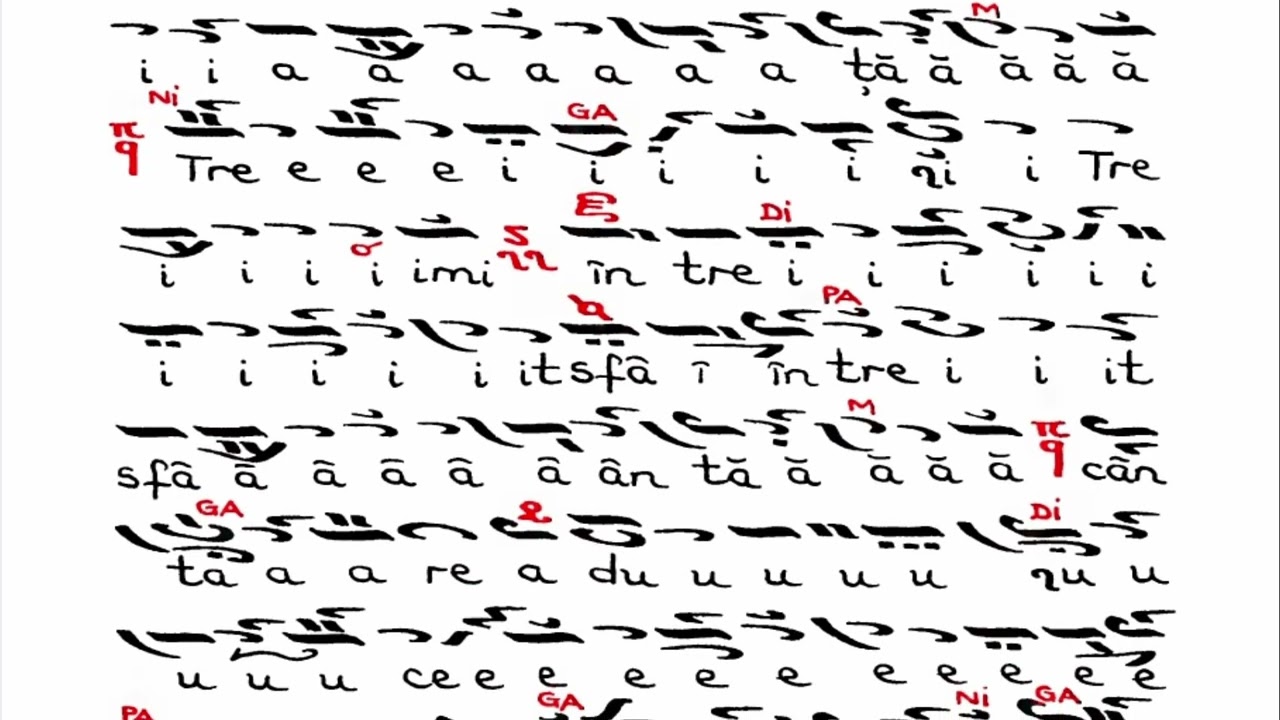 M
i i a a a a a a a ță ă ă ă ă
Ni GA
π q Tre e e e i i i i i ꝗi i Tre
ξ Di
i i i i imi în tre i i i i i i
PA
i i i i i it sfâ î în tre i i it
M
sfâ â â â â â ân tă ă ă ă ă π q cân
GA Di
tă a a re a du u u u u ꝗu u
u u u ce e e e e e e e e e e
PA GA Ni GA